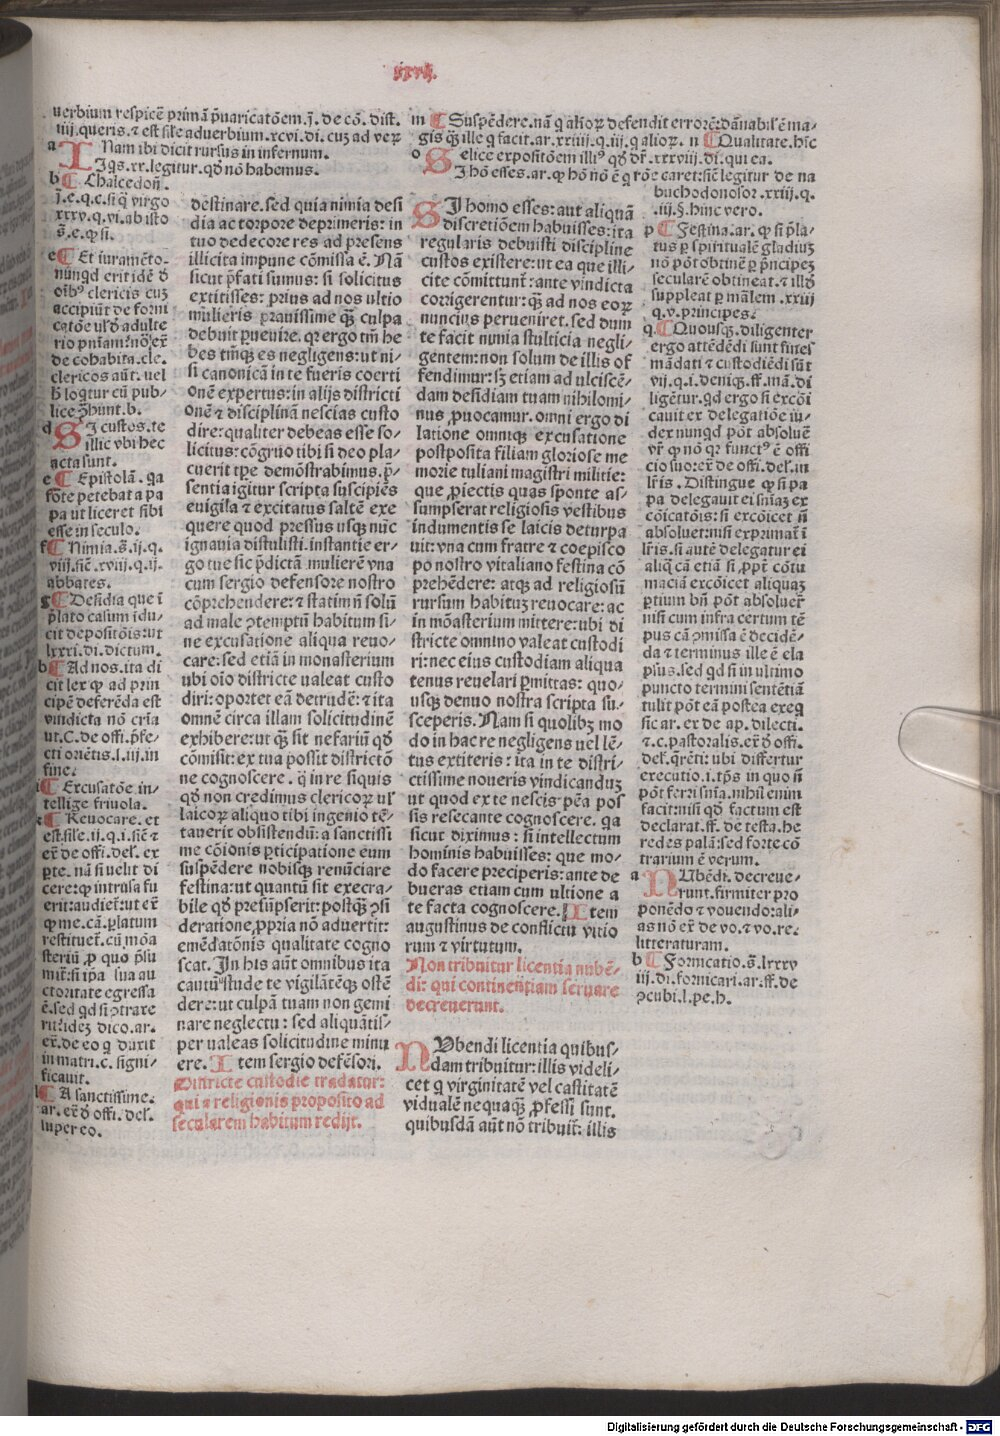 xxvij.
uerbium respicẽ primã p̃uaricatõem.j. de cõ. dist.
iiij.queris.⁊ est siłe aduerbium.xcvi.di. cuz ad verꝝ
a INam ibi dicit rursus in infernum.
IJqs.xx.legitur.qđ nõ habemus.
b Chalcedoñ.
j.e.q.c.si q̃ virgo
xxxv.q.vi.ab isto
s̃.e.ꝙ si.
c Et iuramẽto-
nunqđ erit idẽ đ
oĩbꝰ clericis cuz
accipiũt de forni
catõe uł đ adulte
rio pñiam:nõ:ex̃
de cohabita.cle.
clericos aũt. uel
h̃ loq̃tur cũ pub/
lice p̃hunt.b.
d SI custos.te
illic vbi hec
acta sunt.
e Epistolã. qa
fõte petebat a pa
pa ut liceret sibi
esse in seculo.
f Nimia.s̃.ij.q.
viij.siẽ.xviij.q.ij.
abbates.
g Desidia que ĩ
p̃lato casum ĩdu/
cit depositõis:ut
lxxxi.di.dictum.
h Ad nos.ita di
cit lex ꝙ ad prin
cipẽ deferẽda est
vindicta nõ cr̃ia
ut.C.de offi.p̃fe/
cti oriẽtis.l.iij.in
fine.
i Excusatõe.in/
tellige friuola.
k Reuocare. et
est.siłe.ij.q.i.siẽ ⁊
ex̃ de offi.deł. ex
p̱te. nã si uelit di
cere:ꝙ intrusa fu
erit:audiet̃:ut ex̃
ꝙ me.cã.p̱latum
restituet̃.cũ mõa
steriũ ꝓ quo p̃su
mit̃:si ip̃a sua au
ctoritate egressa
ẽ.sed qđ si ↄtrare
ru̾:idez dico.ar.
ex̃.de eo q duxit
in matri.c. signi/
ficauit.
l A sanctissime.
ar. ex̃ đ offi. deł.
super eo.
destinare. sed quia nimia desi
dia ac torpore deprimeris: in
tuo dedecore res ad presens
illicita impune cõmissa ẽ. Nã
sicut p̃fati sumus: si solicitus
extitisses: prius ad nos ultio
mulieris prauissime q̃ꝫ culpa
debuit p̱uenire. qr ergo tm̃ he
bes tm̃qꝫ es negligens: ut ni/
si canonicã in te fueris coerti
onẽ expertus: in alijs districti
onẽ ⁊ disciplinã nescias custo
dire:qualiter debeas esse so/
licitus: cõgruo tibi si deo pla/
cuerit tp̱e demõstrabimus. p̃/
sentia igitur scripta suscipiẽs
euigila ⁊ excitatus saltẽ exe
quere quod pressus usqꝫ nũc
ignauia distulisti. instantie er/
go tue sic p̃dictã mulierẽ vna
cum sergio defensore nostro
cõprehendere: ⁊ statim ñ solũ
ad male ↄtemptũ habitum si/
ne excusatione aliqua reuo/
care: sed etiã in monasterium
ubi oio districte ualeat custo
diri: oportet eã detrudẽ: ⁊ ita
omnẽ circa illam solicitudinẽ
exhibere: ut q̃ꝫ sit nefariũ qđ
cõmisit: ex tua possit districtõ
ne cognoscere. q̃ in re siquis
qđ non credimus clericoꝝ uł
laicoꝝ aliquo tibi ingenio tẽ/
tauerit obsistendũ: a sanctissi
me cõionis p̱ticipatione eum
suspẽdere nobisqꝫ renũciare
festina: ut quantũ sit execra/
bile qđ presũpserit: postq̃ꝫ ↄsi
deratione ꝓpria nõ aduertit:
emẽdatõnis qualitate cogno
scat. In his aũt omnibus ita
cautũ stude te vigilãteqꝫ ostẽ
dere: ut culpã tuam non gemi
nare neglectu: sed aliquãtis/
per ualeas solicitudine minu
ere. Item sergio defẽsori.
Districte custodie tradatur:
qui a religionis proposito ad
secularem habitum redijt.
m Suspẽdere.nã q alioꝝ defendit errorẽ:dãnabił ẽ ma/
gis q̃ꝫ ille q facit.ar.xxiiij.q.iij.q alioꝝ. n Qualitate.h̾c
o Selice expositõem illiꝰ qđ dr̃.xxxviij.di.qui ea.
SI hõ esses.ar.ꝙ hõ nõ ẽ q rõe caret:siẽ legitur de na
buchodonosor.xxiij.q.
.iij.§.hinc vero.
SI homo esses: aut aliquã
discretiõem habuisses: ita
regularis debuisti discipline
custos existere: ut ea que illi/
cite cõmittunt̃: ante vindicta
corrigerentur: q̃ꝫ ad nos eoꝝ
nuncius perueniret. sed dum
te facit nimia stulticia negli/
gentem: non solum de illis of
fendimur: sꝫ etiam ad ulciscẽ/
dam desidiam tuam nihilomi/
nus ꝓuocamur. omni ergo di
latione omniqꝫ excusatione
postposita filiam gloriose me
morie tuliani magistri militie:
que ꝓiectis quas sponte as/
sumpserat religiosis vestibus
indumentis se laicis deturpa
uit: vna cum fratre ⁊ coepisco
po nostro vitaliano festina cõ
prehẽdere: atqꝫ ad religiosũ
rursum habituꝫ reuocare: ac
in mõasterium mittere: ubi di
stricte omnino valeat custodi
ri: nec eius custodiam aliqua
tenus reuelari p̱mittas: quo/
usqꝫ denuo nostra scripta su/
sceperis. Nam si quolibꝫ mo
do in hac re negligens uel lẽ/
tus extiteris: ita in te distri/
ctissime noueris vindicanduꝫ
ut quod ex te nescis pẽa pos
sis resecante cognoscere. qa
sicut diximus: si intellectum
hominis habuisses: que mo/
do facere preciperis: ante de
bueras etiam cum ultione a
te facta cognoscere. Item
augustinus de conflictu vitio
rum ⁊ virtutum.
Non tribuitur licentia nubẽ/
di: qui continentiam seruare
decreuerunt.
NUbendi licentia quibus/
dam tribuitur: illis videli/
cet q virginitatẽ vel castitatẽ
vidualẽ nequaq̃ꝫ ꝓfessi sunt.
quibusdã aũt nõ tribuit̃: illis
p Festina.ar.ꝙ si p̃la/
tus p̱ spiritualẽ gladiuꝫ
nõ põt obtinẽ p̱ p̃ncipeꝫ
secularẽ obtineat.⁊ illđ
suppleat p̱ mãlem.xxiij
q.v.principes.
q. Quousqꝫ.diligenter
ergo attẽdẽdi sunt fines
mãdati ⁊ custodiẽdi sũt
vij.q.i.deniqꝫ.ff.mã.di
ligẽtur.qđ ergo si excõi
cauit ex delegatiõe iu/
dex nunqđ põt absoluẽ
vr̃ ꝙ nõ qr functꝰ ẽ offi
cio suo:ex̃ de offi.deł.in
lr̃is. Distingue ꝙ si pa
pa delegauit ei sñiaꝫ ex
cõicatõis: si excõicet ñ
absoluet:nisi exprimat̃ ĩ
lr̃is.si autẽ delegatur ei
aliq̃ cã etiã si ꝓpt̃ cõtu
maciã excõicet aliquaꝫ
p̱tium bñ põt absoluer̃
nisi cum infra certum tẽ
pus cã ↄmissa ẽ decidẽ/
da ⁊ terminus ille ẽ ela
p̃sus.sed qđ si in ultimo
puncto termini sentẽtiã
tulit põt eã postea exeq
sic ar. ex de ap. dilecti.
⁊.c.pastoralis.ex̃ đ offi.
deł.q̃rẽti: ubi differtur
executio.i.tp̃s in quo si
põt ferri snĩa.nihil enim
facit:nisi qđ factum est
declarat.ff. de testa.he
redes palã:sed forte cõ
trarium ẽ verum.
a NUbẽdi. decreue/
runt.firmiter pro
ponẽdo ⁊ vouendo:ali/
as nõ ex̃ de vo.⁊ vo.re
litteraturam.
b Fornicatio.s̃.lxxxv
iij.di.fornicari.ar.ff.de
ↄcubi.l.pe.h.
Digitalisierung gefördert durch die Deutsche Forschungsgemeinschaft - DFG